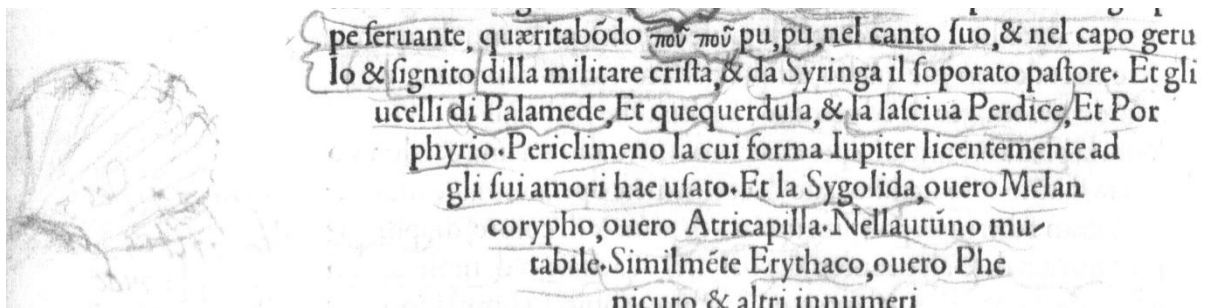 pe ſeruante, quæritabõdo ποῦ ποῦ pu,pu,nel canto ſuo,& nel capo geru
lo & ſignito dilla militare criſta,& da Syringa il ſoporato paſtore. Et gli
ucelli di Palamede,Et quequerdula,& la laſciua Perdice,Et Por
phyrio.Periclimeno la cui forma Iupiter licentemente ad
gli ſui amori hae uſato.Et la Sygolida,ouero Melan
corypho,ouero Atricapilla.Nellautũno mu-
tabile.Similmẽte Erythaco,ouero Phe
nicuro & altri innumeri